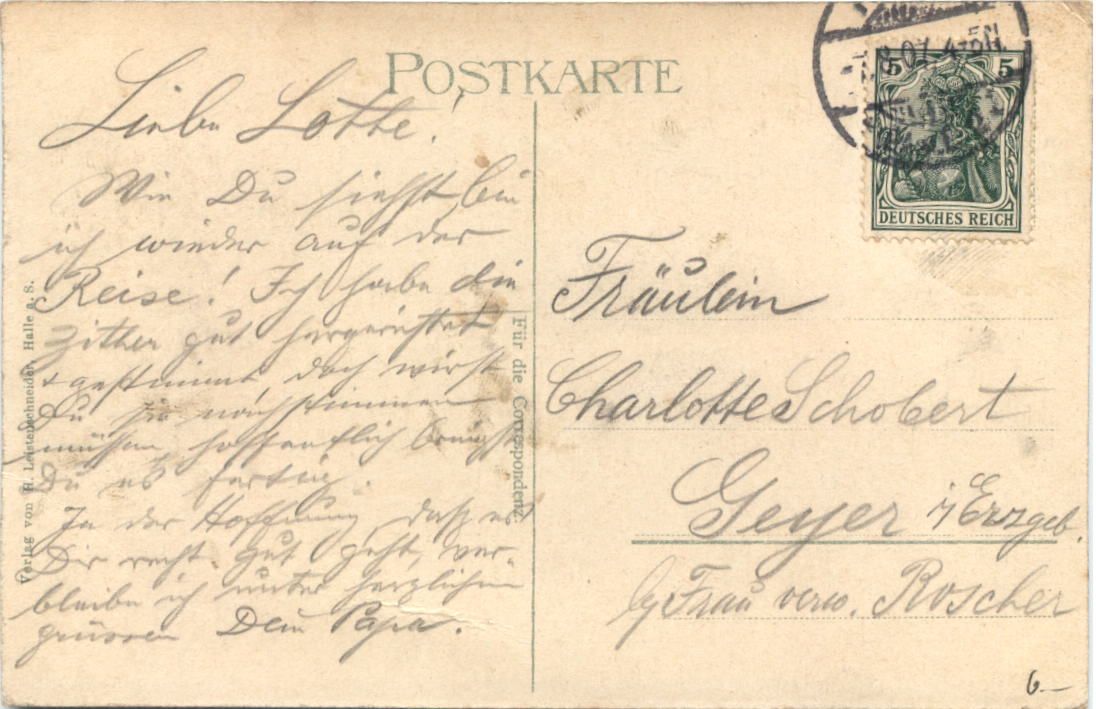 POSTKARTE
Liebe Lotte!
Wie Du siehst, bin
ich wieder auf der
Reise! Ich habe die
Zither gut hergerichtet
+ gestimmt, doch wirst
Du sie nachstimmen
müssen, hoffentlich bringst
Du es fertig.
In der Hoffnung, dass es
Dir recht gut geht, ver-
bleibe ich unter herzlichen
grüssen Dein Papa.
Verlag von H. Leistenschneider, Halle a. S.
Für die Correspondenz
5 5
DEUTSCHES REICH
07. 4-5N.
Fräulein
Charlotte Schobert
Geyer i/Erzgeb.
b/Frau verw. Roscher
6.—